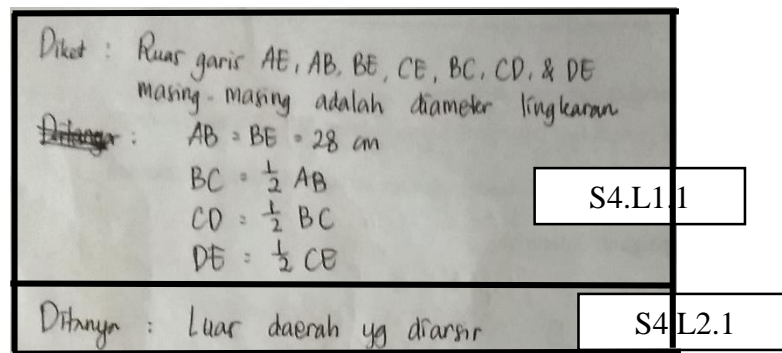 Diket : Ruas garis AE, AB, BE, CE, BC, CD, & DE
masing-masing adalah diameter lingkaran
Ditanya : AB = BE = 28 cm
BC = 1/2 AB
CD = 1/2 BC
DE = 1/2 CE
S4.L1.1
Ditanya : Luas daerah yg diarsir
S4.L2.1